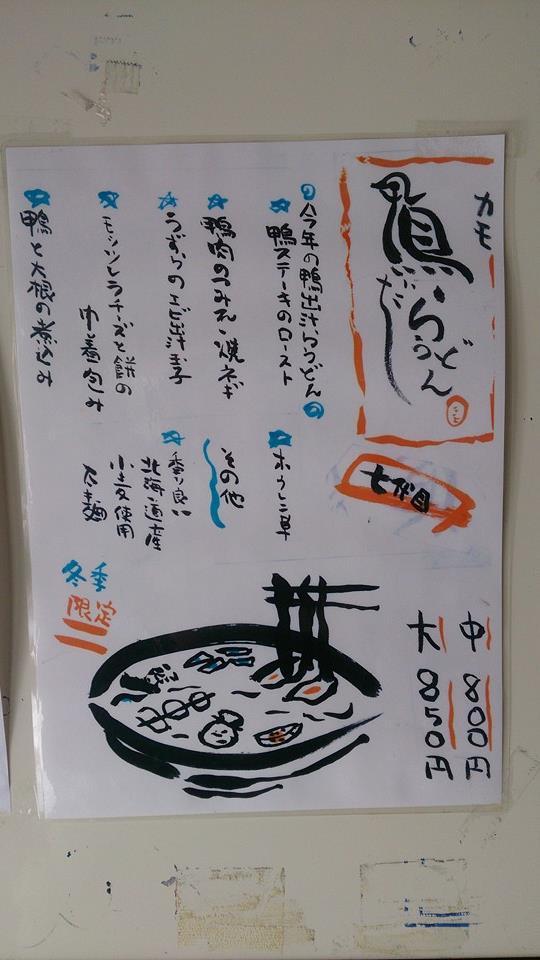 カモ
鴨だしうどん
七代目
中 800円
大 850円
今年の鴨出汁うどん
鴨ステーキのロースト
鴨肉のつみれと焼ネギ
うずらのエビ出汁玉子
モッツァレラチーズと餅の
巾着包み
鴨と大根の煮込み
ホウレン草
その他
香り良い
北海道産
小麦使用
麺
冬季
限定